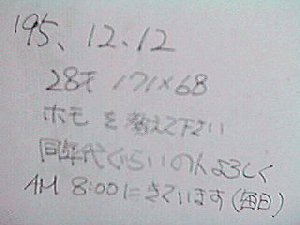 '95、12、12
28才 171×68
ホモ を教えて下さい
同年代ぐらいの人よろしく
AM 8:00にきています(毎日)